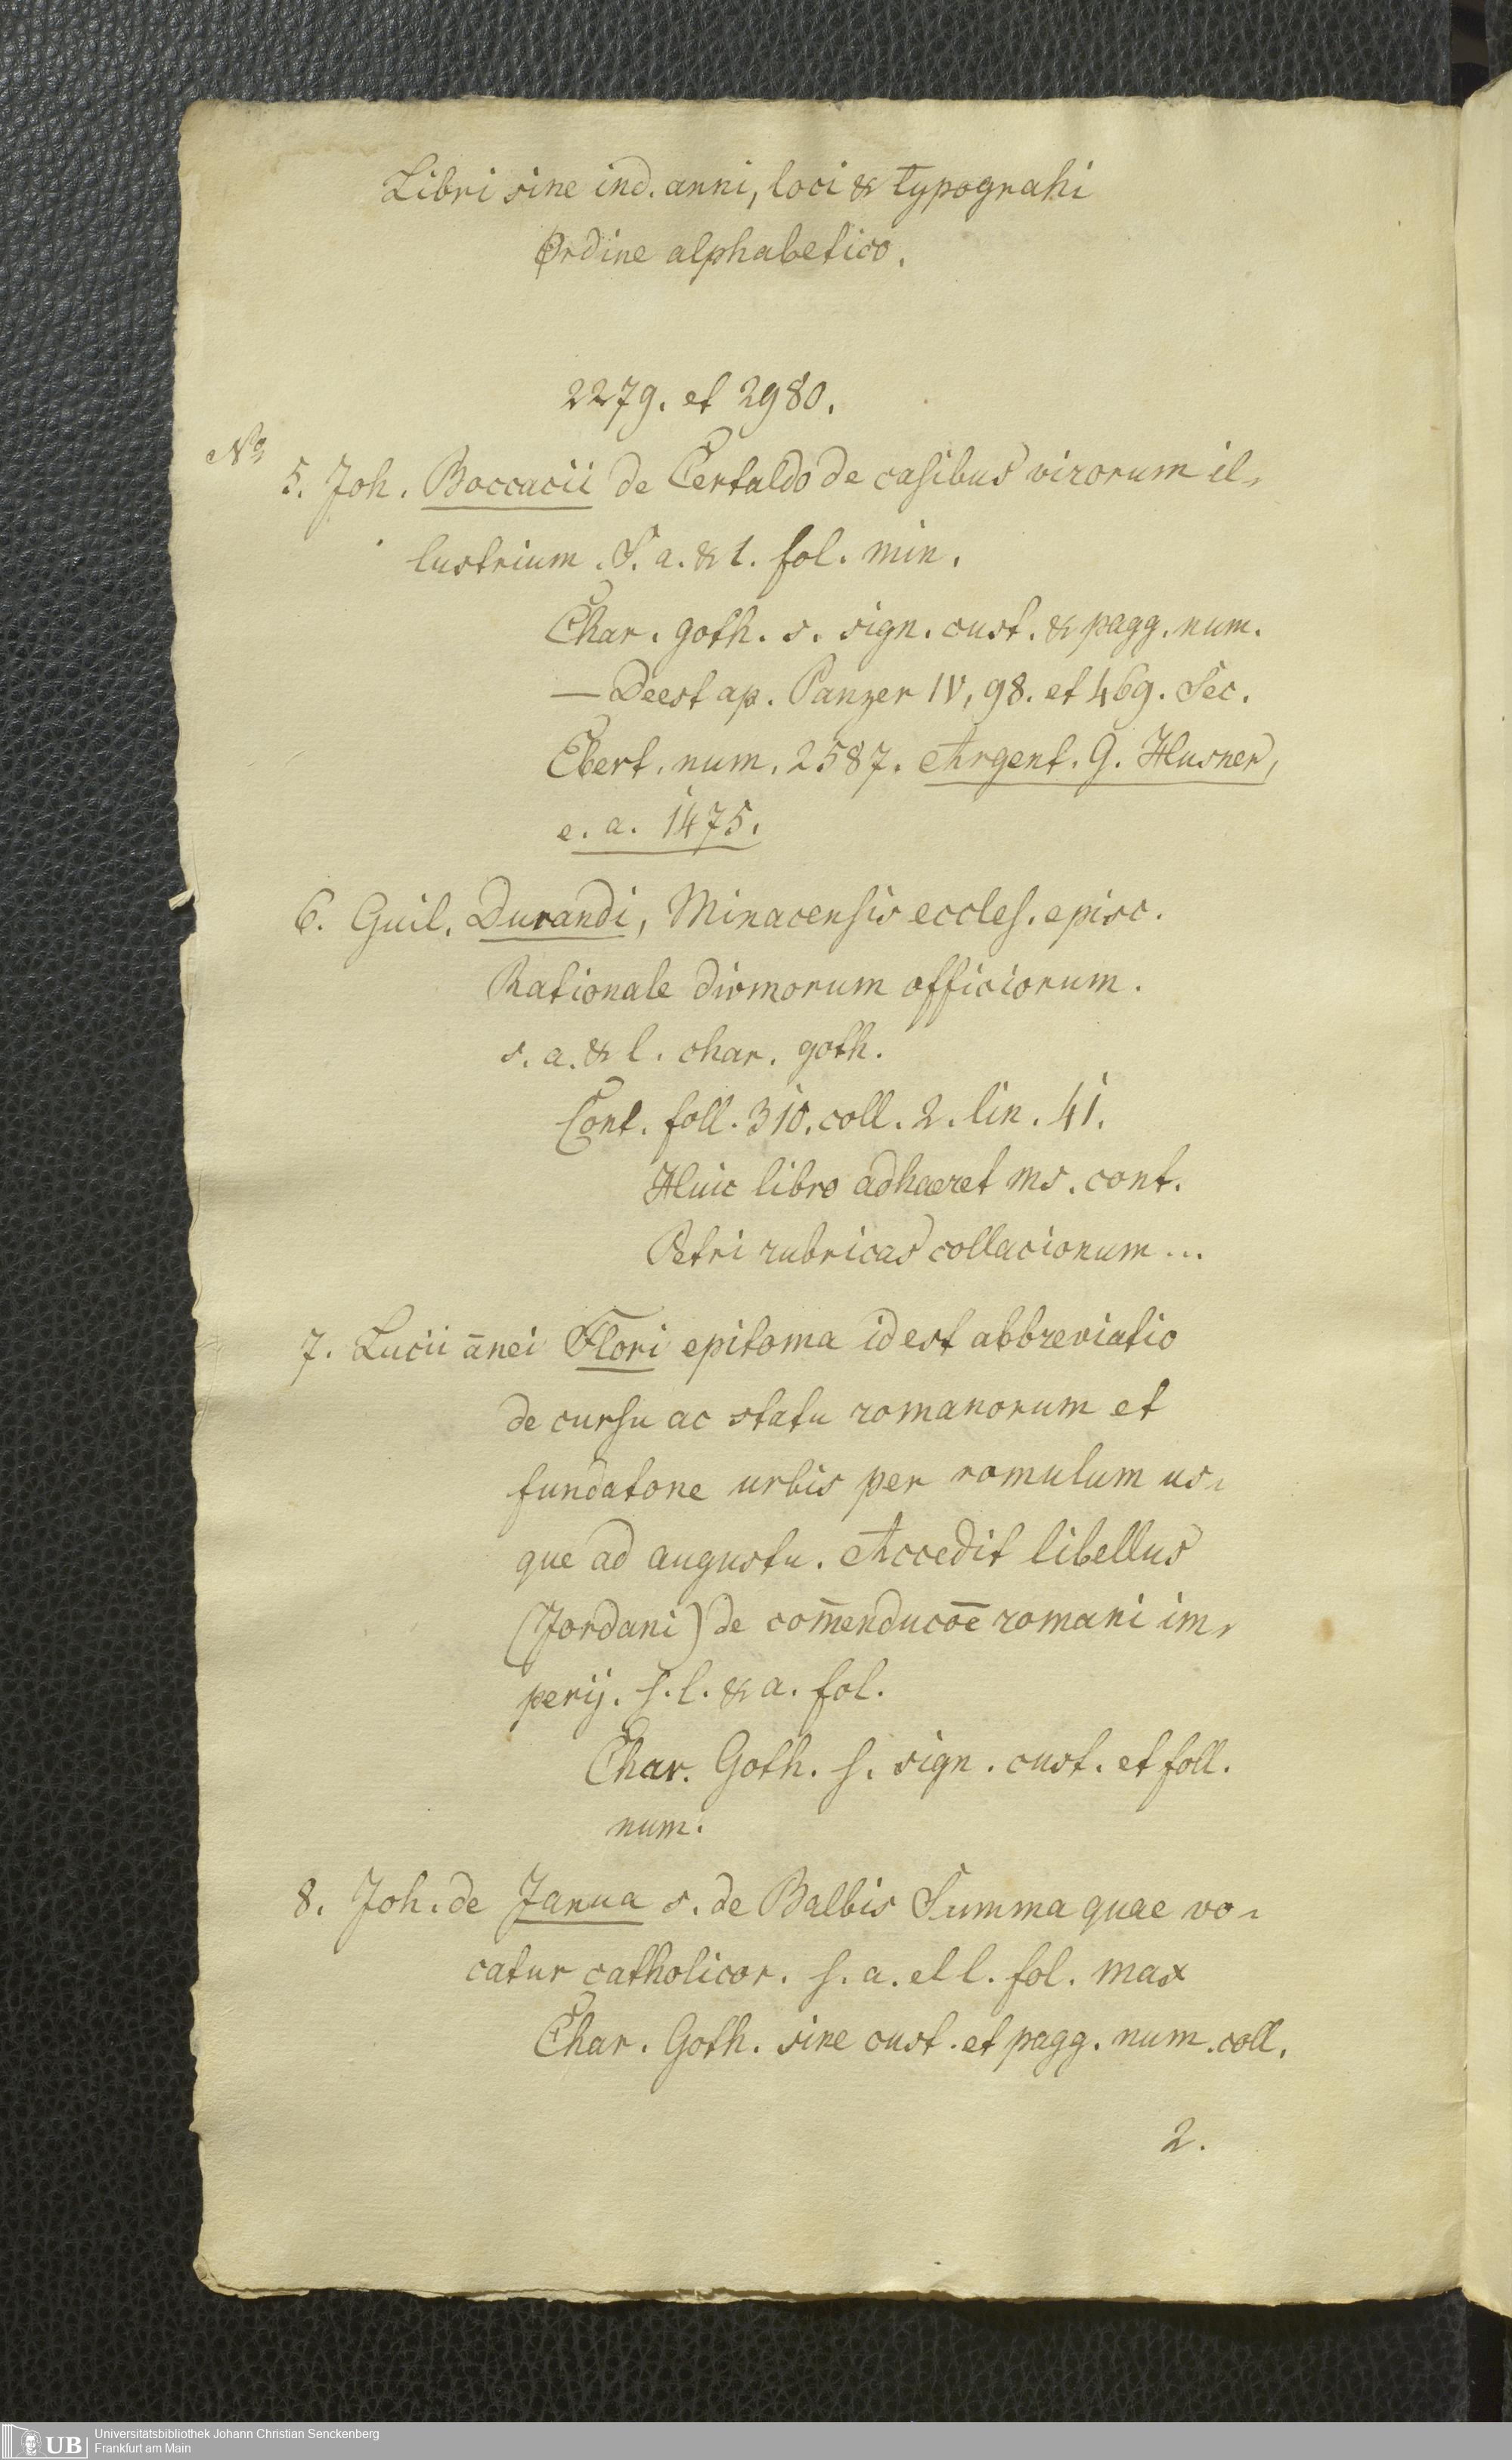 Libri sine ind. anni, loci & typograhi
Ordine alphabetico.
2279. et 2980.
No
5. Joh. Boccacii de Certaldo de casibus virorum il-
lustrium. S. a. & l. fol. min.
Char. goth. s. sign. cust. & pagg. num.
— Deest ap. Panzer IV, 98. et 469. Sec.
Ebert. num. 2587. Argent. G. Husner,
e. a. 1475.
6. Guil. Durandi, Minacensis eccles. episc.
Rationale divinorum officiorum.
s. a. & l. char. goth.
Cont. foll. 310. coll. 2. lin. 41.
Huic libro adhaeret ms. cont.
Petri rubricas collacionum...
7. Lucii ānei Flori epitoma id est abbreviatio
de cursu ac statu romanorum et
fundatone urbis per romulum us-
que ad augustu. Accedit libellus
(Jordani) de com̄enducōe romani im-
perij. s. l. & a. fol.
Char. Goth. s. sign. cust. et foll.
num.
8. Joh. de Janua s. de Balbis Summa quae vo-
catur catholicor. s. a. et l. fol. max
Char. Goth. sine cust. et pagg. num. coll.
2.
UB
Universitätsbibliothek Johann Christian Senckenberg
Frankfurt am Main